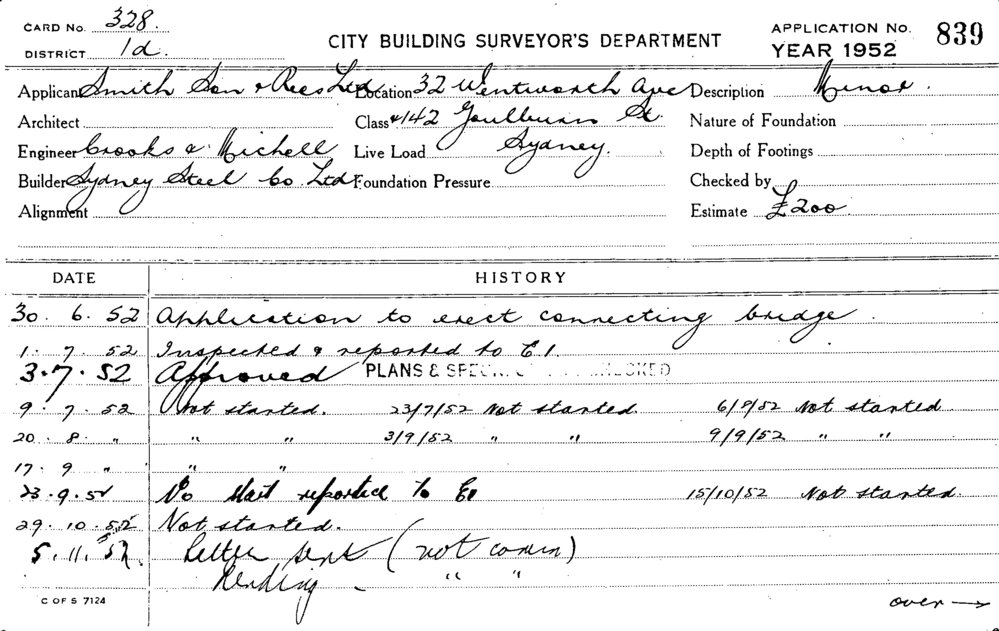 CARD No. 328.
DISTRICT 1d.
CITY BUILDING SURVEYOR'S DEPARTMENT
APPLICATION No. 839
YEAR 1952
Applicant Smith Son & Rees Ltd Location 32 Wentworth Ave Description Minor.
Architect Class & 142 Goulburn St. Nature of Foundation
Engineer Crooks & Michell Live Load Sydney. Depth of Footings
Builder Sydney Steel Co. Ltd. Foundation Pressure Checked by
Alignment Estimate £200.
DATE HISTORY
30. 6. 52 Application to erect connecting bridge.
1. 7. 52 Inspected & reported to E1.
3. 7. 52 Approved PLANS &
9. 7. 52 Not started. 23/7/52 Not started. 6/8/52 Not started.
20. 8. " " " 3/9/52 " " 9/9/52 " "
17. 9 " " "
23. 9. 52 No start reported to E1 15/10/52 Not started.
29. 10. 52 Not started.
5. 11. 52 Letter sent (not comm)
Pending - " "
C OF S 7124
over →